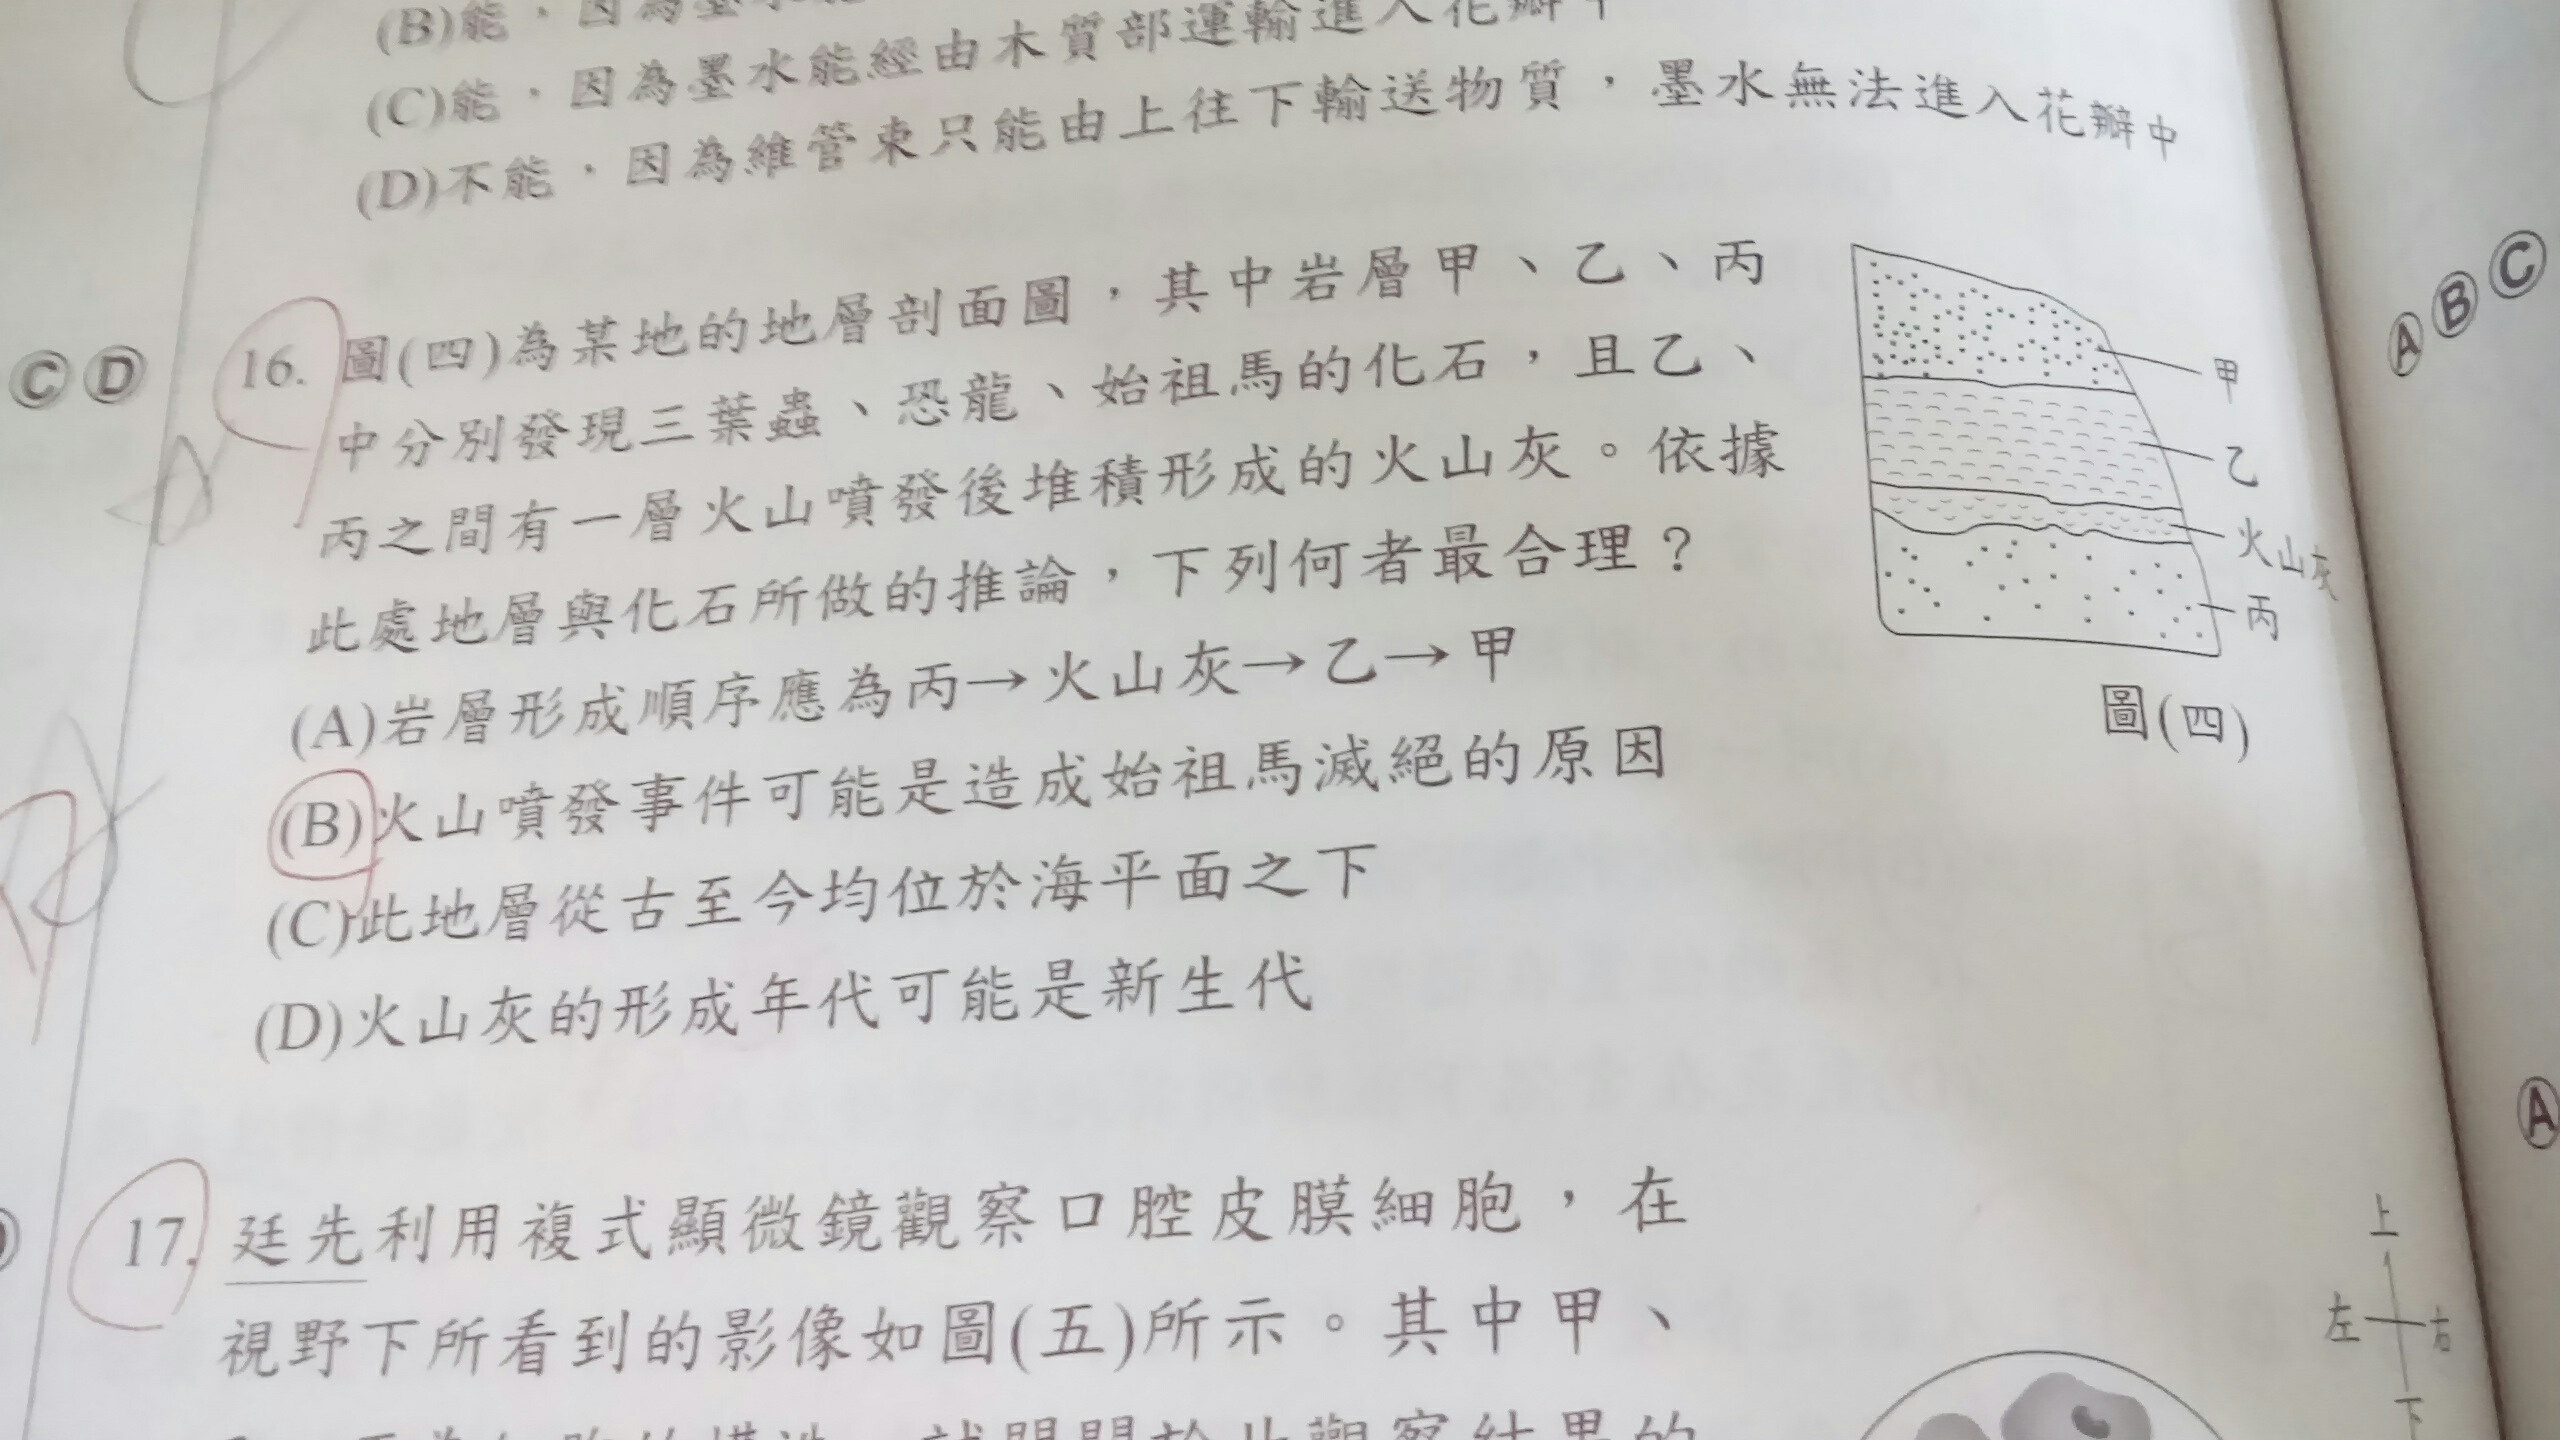 (B)能，因為墨水能
(C)能，因為墨水能經由木質部運輸進入花瓣中
(D)不能，因為維管束只能由上往下輸送物質，墨水無法進入花瓣中
C D
16. 圖(四)為某地的地層剖面圖，其中岩層甲、乙、丙
中分別發現三葉蟲、恐龍、始祖馬的化石，且乙、
丙之間有一層火山噴發後堆積形成的火山灰。依據
此處地層與化石所做的推論，下列何者最合理？
(A)岩層形成順序應為丙→火山灰→乙→甲
(B)火山噴發事件可能是造成始祖馬滅絕的原因
(C)此地層從古至今均位於海平面之下
(D)火山灰的形成年代可能是新生代
甲
乙
火山灰
丙
圖(四)
A B C
A
17. 廷先利用複式顯微鏡觀察口腔皮膜細胞，在
視野下所看到的影像如圖(五)所示。其中甲、
上
左 右
下